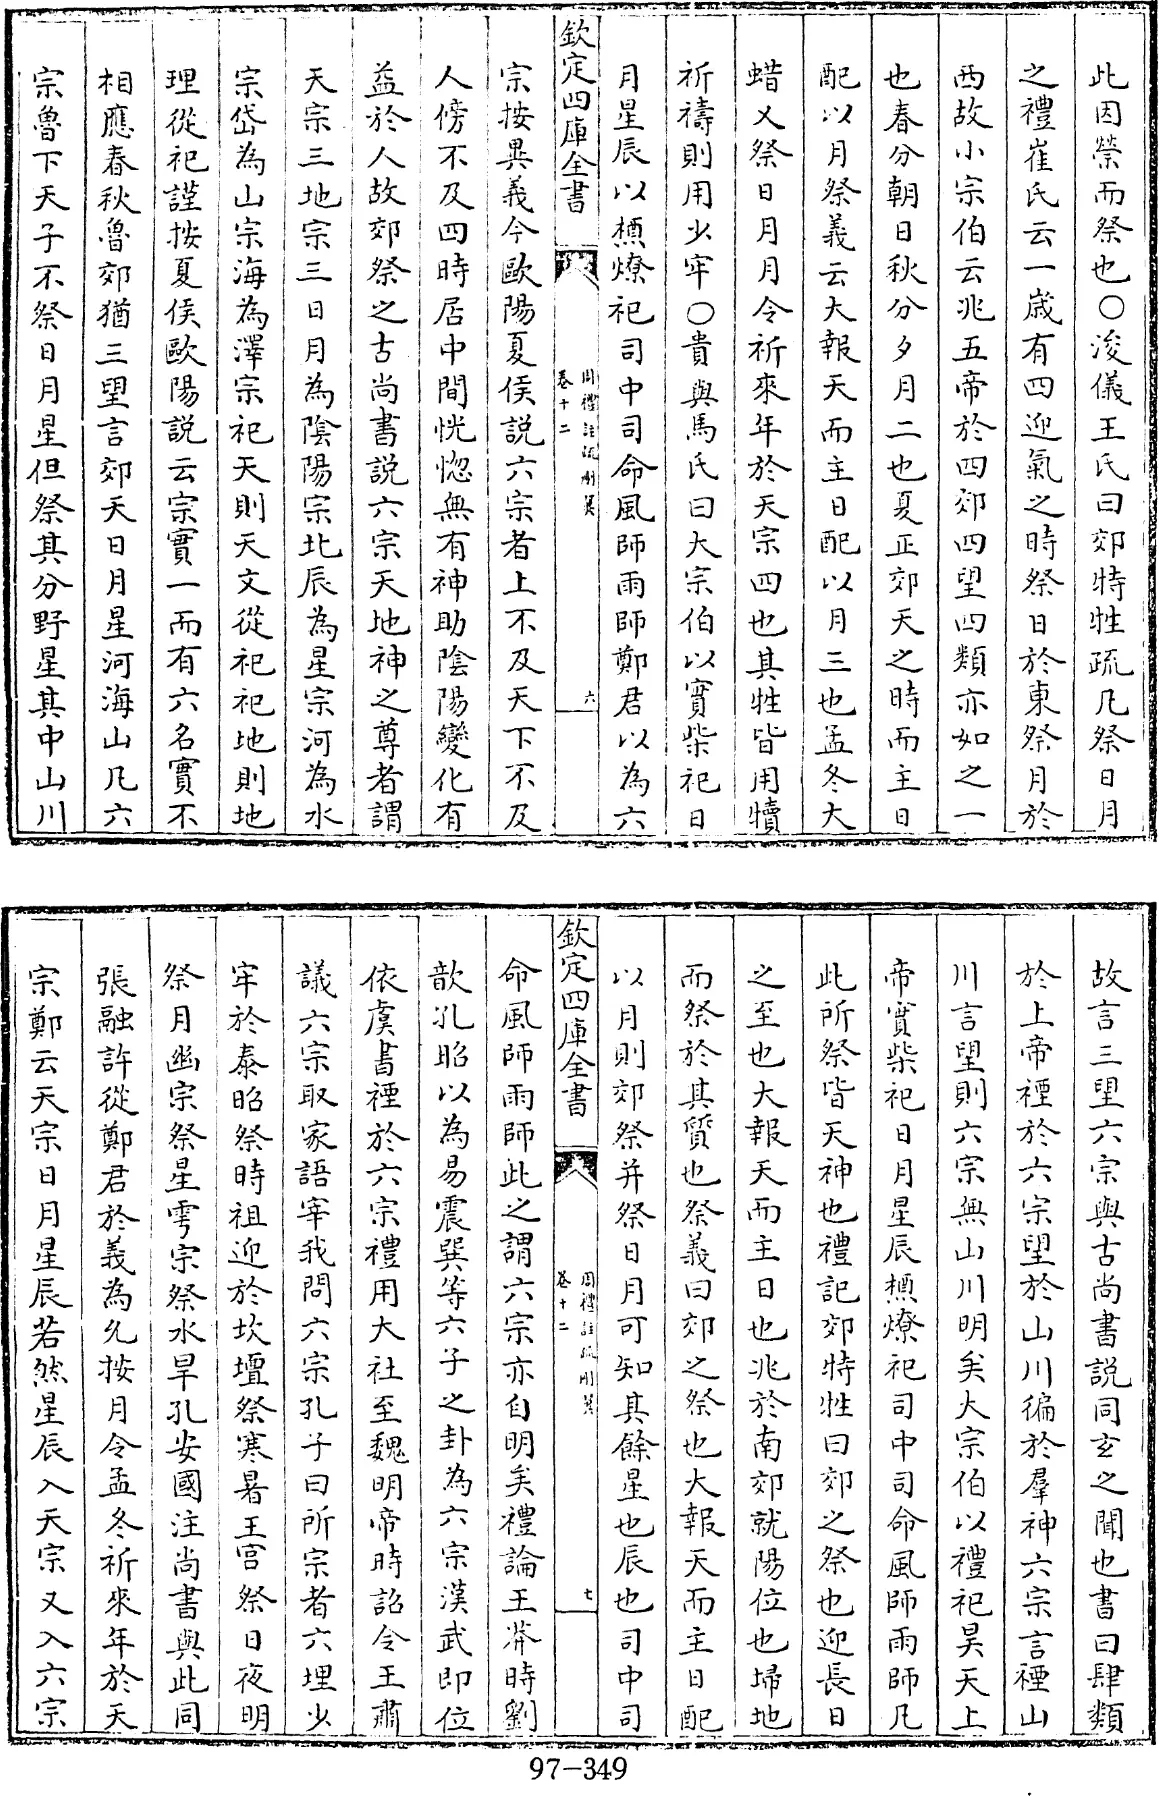 此因禜而祭也○浚儀王氏曰郊特牲疏凡祭日月
之禮崔氏云一歲有四迎氣之時祭日於東祭月於
西故小宗伯云兆五帝於四郊四望四類亦如之一
也春分朝日秋分夕月二也夏正郊天之時而主日
配以月祭義云大報天而主日配以月三也孟冬大
蜡又祭日月月令祈來年於天宗四也其牲皆用犢
祈禱則用少牢○貴與馬氏曰大宗伯以實柴祀日
月星辰以槱燎祀司中司命風師雨師鄭君以為六
欽定四庫全書
周禮註疏刪翼
卷十二
六
宗按異義今歐陽夏侯說六宗者上不及天下不及
人傍不及四時居中間恍惚無有神助陰陽變化有
益於人故郊祭之古尚書說六宗天地神之尊者謂
天宗三地宗三日月為陰陽宗北辰為星宗河為水
宗岱為山宗海為澤宗祀天則天文從祀祀地則地
理從祀謹按夏侯歐陽說云宗實一而有六名實不
相應春秋魯郊猶三望言郊天日月星河海山凡六
宗魯下天子不祭日月星但祭其分野星其中山川
故言三望六宗與古尚書說同玄之聞也書曰肆類
於上帝禋於六宗望於山川徧於羣神六宗言禋山
川言望則六宗無山川明矣大宗伯以禮祀昊天上
帝實柴祀日月星辰槱燎祀司中司命風師雨師凡
此所祭皆天神也禮記郊特牲曰郊之祭也迎長日
之至也大報天而主日也兆於南郊就陽位也埽地
而祭於其質也祭義曰郊之祭也大報天而主日配
以月則郊祭并祭日月可知其餘星也辰也司中司
欽定四庫全書
周禮註疏刪翼
卷十二
七
命風師雨師此之謂六宗亦自明矣禮論王莽時劉
歆孔昭以為易震巽等六子之卦為六宗漢武即位
依虞書禋於六宗禮用大社至魏明帝時詔令王肅
議六宗取家語宰我問六宗孔子曰所宗者六埋少
牢於泰昭祭時祖迎於坎壇祭寒暑王宮祭日夜明
祭月幽宗祭星雩宗祭水旱孔安國注尚書與此同
張融許從鄭君於義為允按月令孟冬祈來年於天
宗鄭云天宗日月星辰若然星辰入天宗又入六宗
97-349